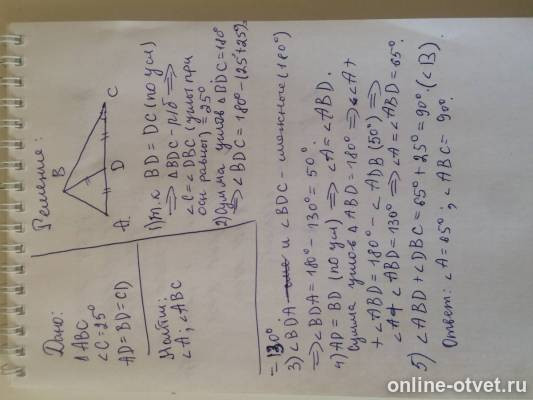 Дано:
Δ ABC
∠C=25°
AD=BD=CD
Найти:
∠A; ∠ABC
Решение:
B
A
D
C
1) т.к BD=DC (по усл)
⇒ ΔBDC - р/б ⇒
∠C=∠DBC (углы при
осн равны) = 25°
2) Сумма углов ΔBDC=180°
⇒ ∠BDC=180°-(25+25)
= 130°.
3) ∠BDA и ∠BDC - смежные (180°)
⇒ ∠BDA=180°-130°=50°.
4) AD=BD (по усл) ⇒ ∠A=∠ABD.
Сумма углов ΔABD=180° ⇒ ∠A+
+∠ABD=180°-∠ADB(50°) ⇒
∠A+∠ABD=130° ⇒ ∠A=∠ABD=65°
5) ∠ABD+∠DBC=65°+25°=90°.(∠B)
Ответ: ∠A=65°; ∠ABC=90°.
online-otvet.ru